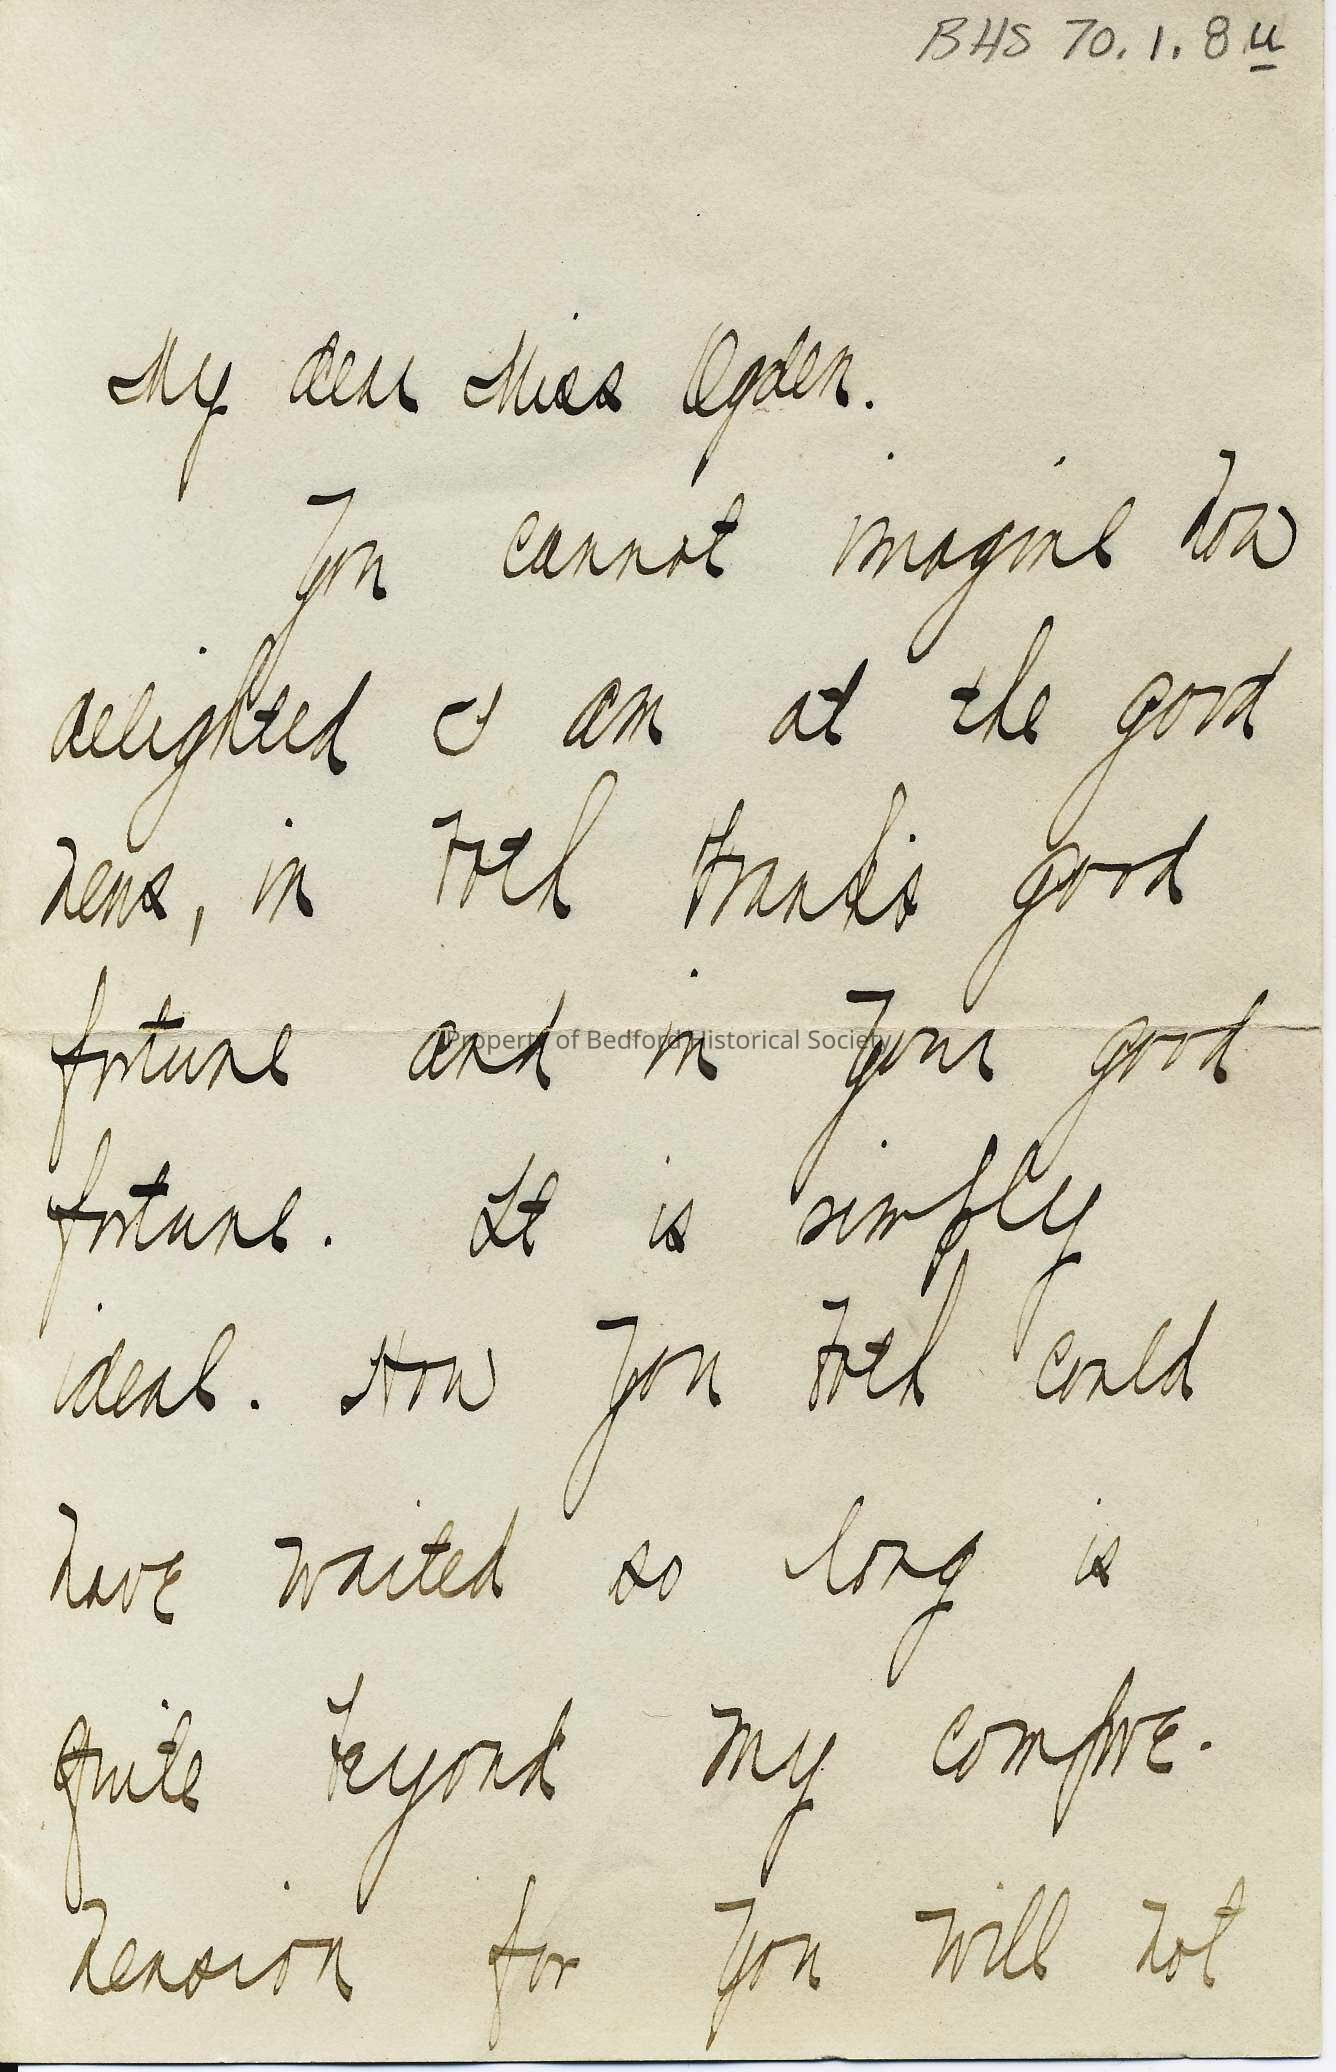 BHS 70.1.8 u
My dear Miss Ogden.
You cannot imagine how
delighted I am at the good
news, in both Franks good
fortune and in your good
Property of Bedford Historical Society
fortune. It is simply
ideal. How you both could
have waited so long is
quite beyond my compre-
hension for you will not